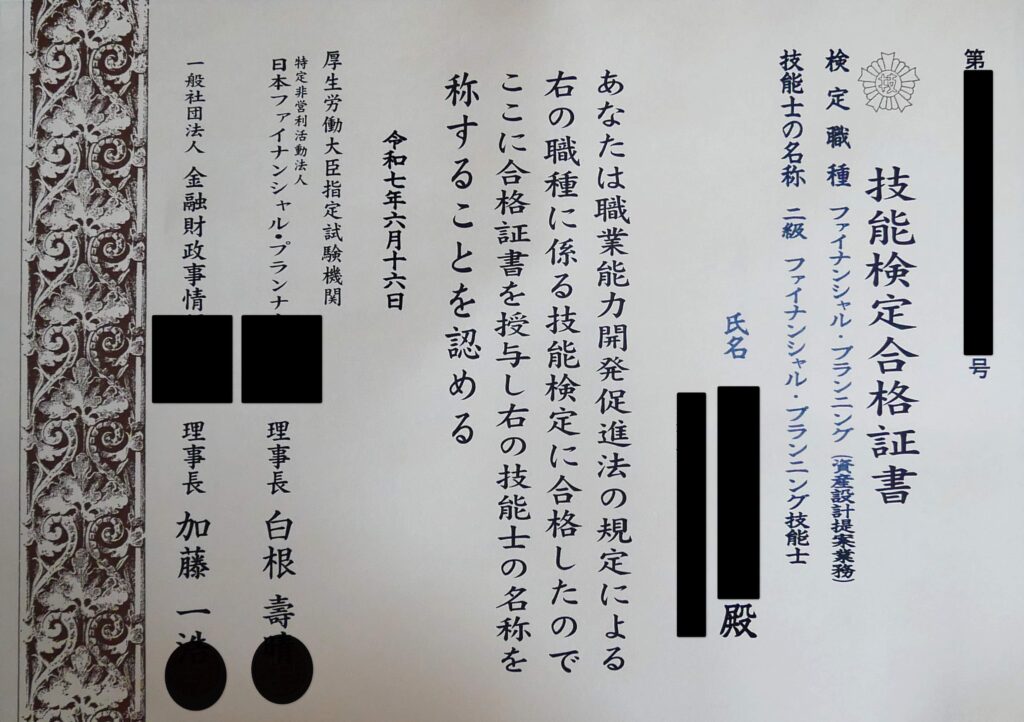 第
号
技能検定合格証書
検定職種 ファイナンシャル・プランニング(資産設計提案業務)
技能士の名称 二級 ファイナンシャル・プランニング技能士
氏名
殿
あなたは職業能力開発促進法の規定による
右の職種に係る技能検定に合格したので
ここに合格証書を授与し右の技能士の名称を
称することを認める
令和七年六月十六日
厚生労働大臣指定試験機関
特定非営利活動法人
日本ファイナンシャル・プランナ
理事長 白根 壽晴
一般社団法人 金融財政事情
理事長 加藤 一浩